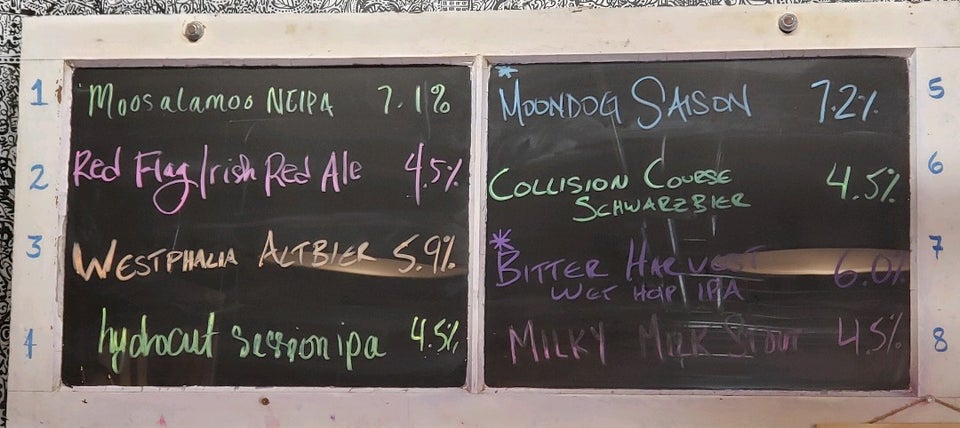 1 Moosalamoo NEIPA 7.1%
2 Red Flag Irish Red Ale 4.5%
3 WESTPHALIA ALTBIER 5.9%
4 hydrocut session ipa 4.5%
* MOONDOG SAISON 7.2% 5
COLLISION COURSE 4.5% 6
SCHWARZBIER
* BITTER HARVEST 6.0% 7
WET HOP IPA
MILKY MILK STOUT 4.5% 8